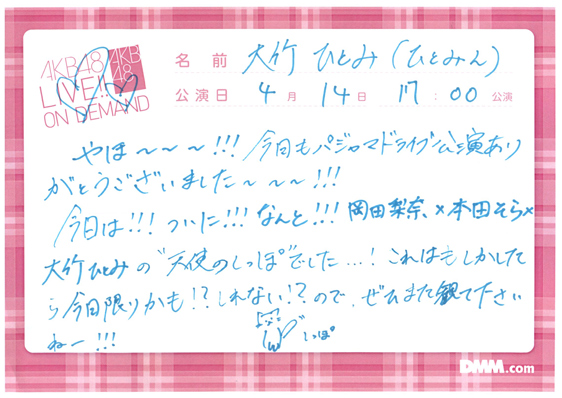 AKB48
LIVE!!
ON DEMAND
AKB
48
名前 大竹ひとみ(ひとみん)
公演日 4月14日 17:00公演
やほ〜〜〜!!!今日もパジャマドライブ公演あり
がとうございました〜〜〜!!!
今日は!!!ついに!!!なんと!!!岡田梨奈×本田そら×
大竹ひとみの"天使のしっぽ"でした…!これはもしかした
ら今日限りかも!?しれない!?ので、ぜひまた観て下さい
ねー!!!
しっぽ
DMM.com